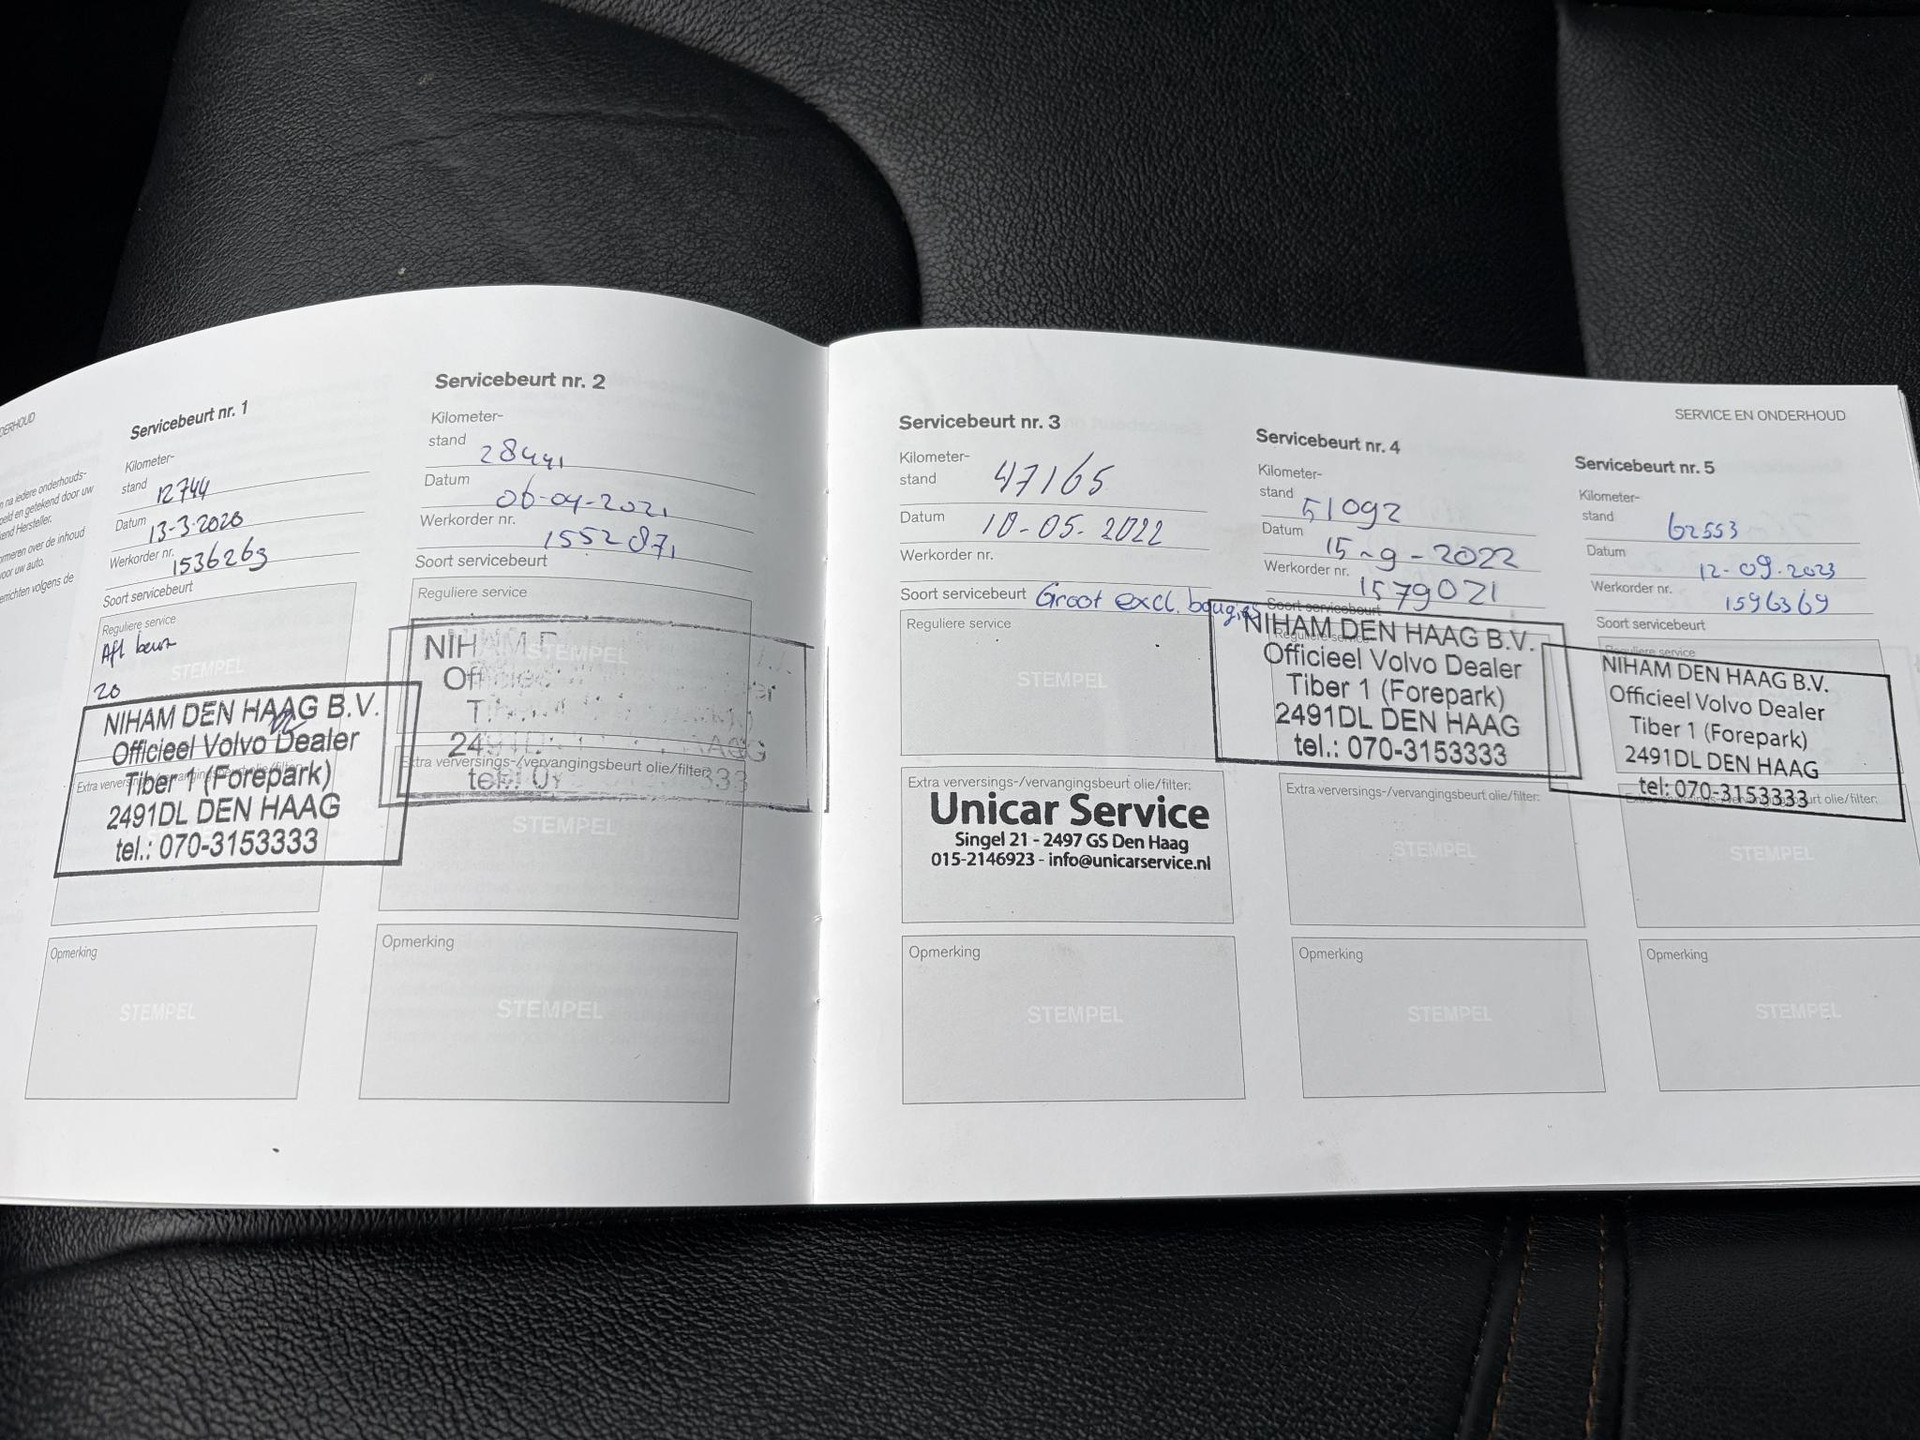 DERHOUD
na iedere onderhouds-
eld en getekend door uw
end Hersteller.
rmeren over de inhoud
voor uw auto.
errichten volgens de
Servicebeurt nr. 1
Kilometer-
stand 12744
Datum 13-3-2020
Werkorder nr. 1536263
Soort servicebeurt
Reguliere service
Afl beurt
STEMPEL
20
NIHAM DEN HAAG B.V.
Officieel Volvo Dealer
Extra verversings-/vervangingsbeurt olie/filter:
Tiber 1 (Forepark)
2491DL DEN HAAG
tel.: 070-3153333
Opmerking
STEMPEL
Servicebeurt nr. 2
Kilometer-
stand 28441
Datum 06-04-2021
Werkorder nr. 1552871
Soort servicebeurt
Reguliere service
STEMPEL
Extra verversings-/vervangingsbeurt olie/filter:
STEMPEL
Opmerking
STEMPEL
SERVICE EN ONDERHOUD
Servicebeurt nr. 3
Kilometer-
stand 47165
Datum 10-05-2022
Werkorder nr.
Soort servicebeurt Groot excl. bougies
Reguliere service
STEMPEL
Extra verversings-/vervangingsbeurt olie/filter:
Unicar Service
Singel 21 - 2497 GS Den Haag
015-2146923 - info@unicarservice.nl
Opmerking
STEMPEL
Servicebeurt nr. 4
Kilometer-
stand 51092
Datum 15-9-2022
Werkorder nr. 1579021
Soort servicebeurt
Reguliere service
NIHAM DEN HAAG B.V.
Officieel Volvo Dealer
Tiber 1 (Forepark)
2491DL DEN HAAG
tel.: 070-3153333
Extra verversings-/vervangingsbeurt olie/filter:
STEMPEL
Opmerking
STEMPEL
Servicebeurt nr. 5
Kilometer-
stand 62553
Datum 12-09-2023
Werkorder nr. 1596369
Soort servicebeurt
Reguliere service
NIHAM DEN HAAG B.V.
Officieel Volvo Dealer
Tiber 1 (Forepark)
2491DL DEN HAAG
tel: 070-3153333
Extra verversings-/vervangingsbeurt olie/filter:
STEMPEL
Opmerking
STEMPEL